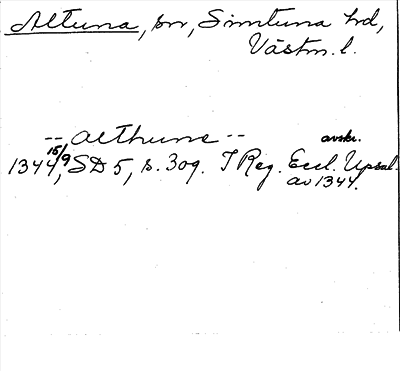 Altuna, sn, Simtuna hd,
Västm. l.
-- althune -- avskr.
1344 15/9, SD 5, s. 309. I Reg. Eccl. Upsal.
av 1344.